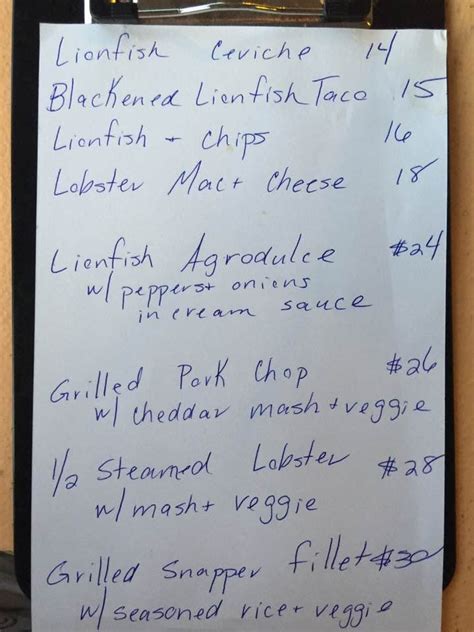 Lionfish Ceviche 14
Blackened Lionfish Taco 15
Lionfish + chips 16
Lobster Mac + cheese 18
Lionfish Agrodulce $24
w/ peppers + onions
in cream sauce
Grilled Pork Chop $26
w/ cheddar mash + veggie
1/2 Steamed Lobster $28
w/ mash + veggie
Grilled Snapper fillet $30
w/ seasoned rice + veggie